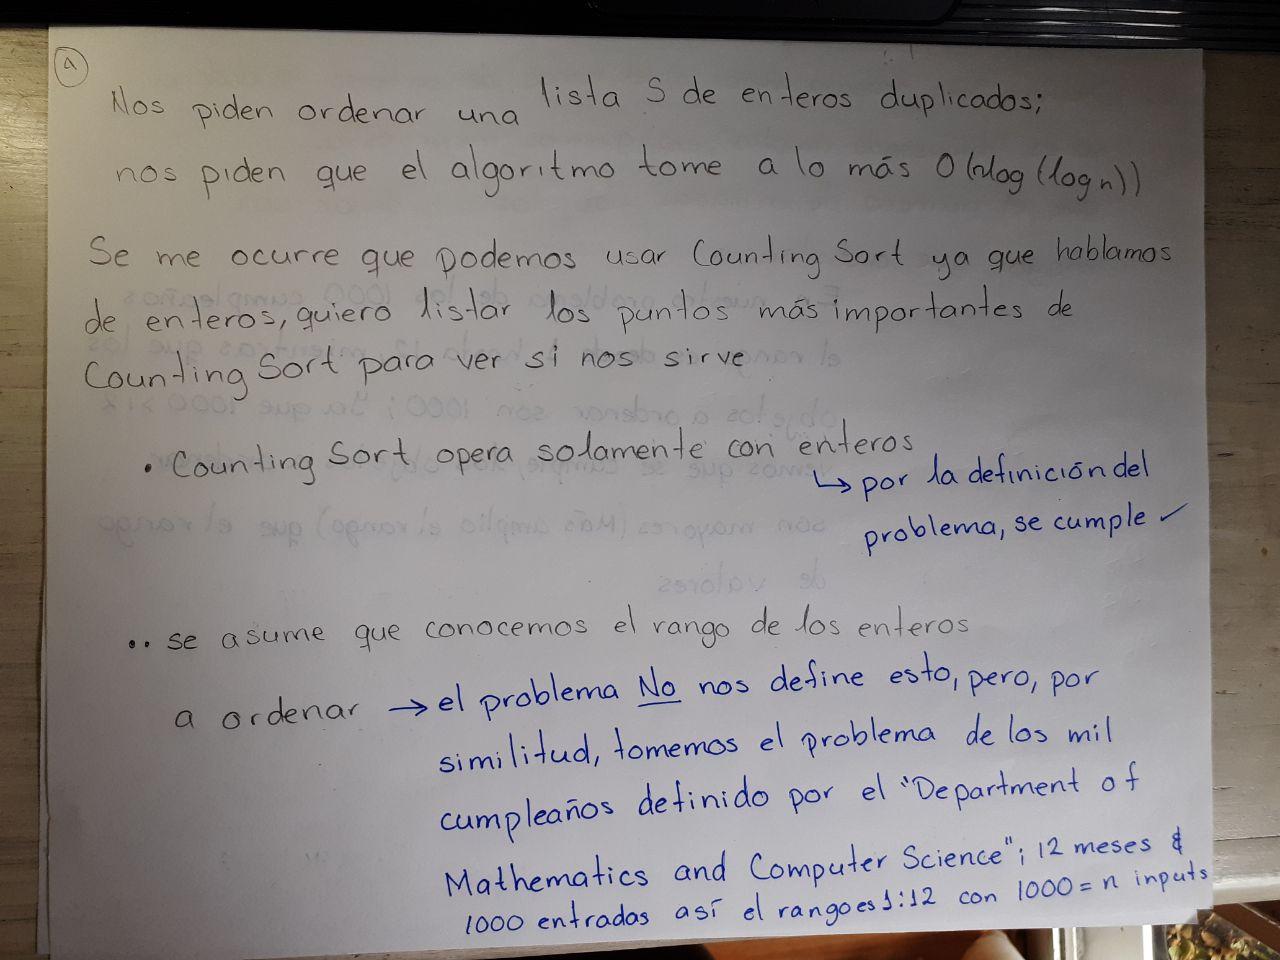 a
Nos piden ordenar una lista S de enteros duplicados;
nos piden que el algoritmo tome a lo más O(nlog(log n))
Se me ocurre que podemos usar Counting Sort ya que hablamos
de enteros, quiero listar los puntos más importantes de
Counting Sort para ver si nos sirve
• Counting Sort opera solamente con enteros
↳ por la definición del
problema, se cumple ✓
•• se asume que conocemos el rango de los enteros
a ordenar → el problema No nos define esto, pero, por
similitud, tomemos el problema de los mil
cumpleaños definido por el "Department of
Mathematics and Computer Science"; 12 meses &
1000 entradas así el rango es 1:12 con 1000 = n inputs